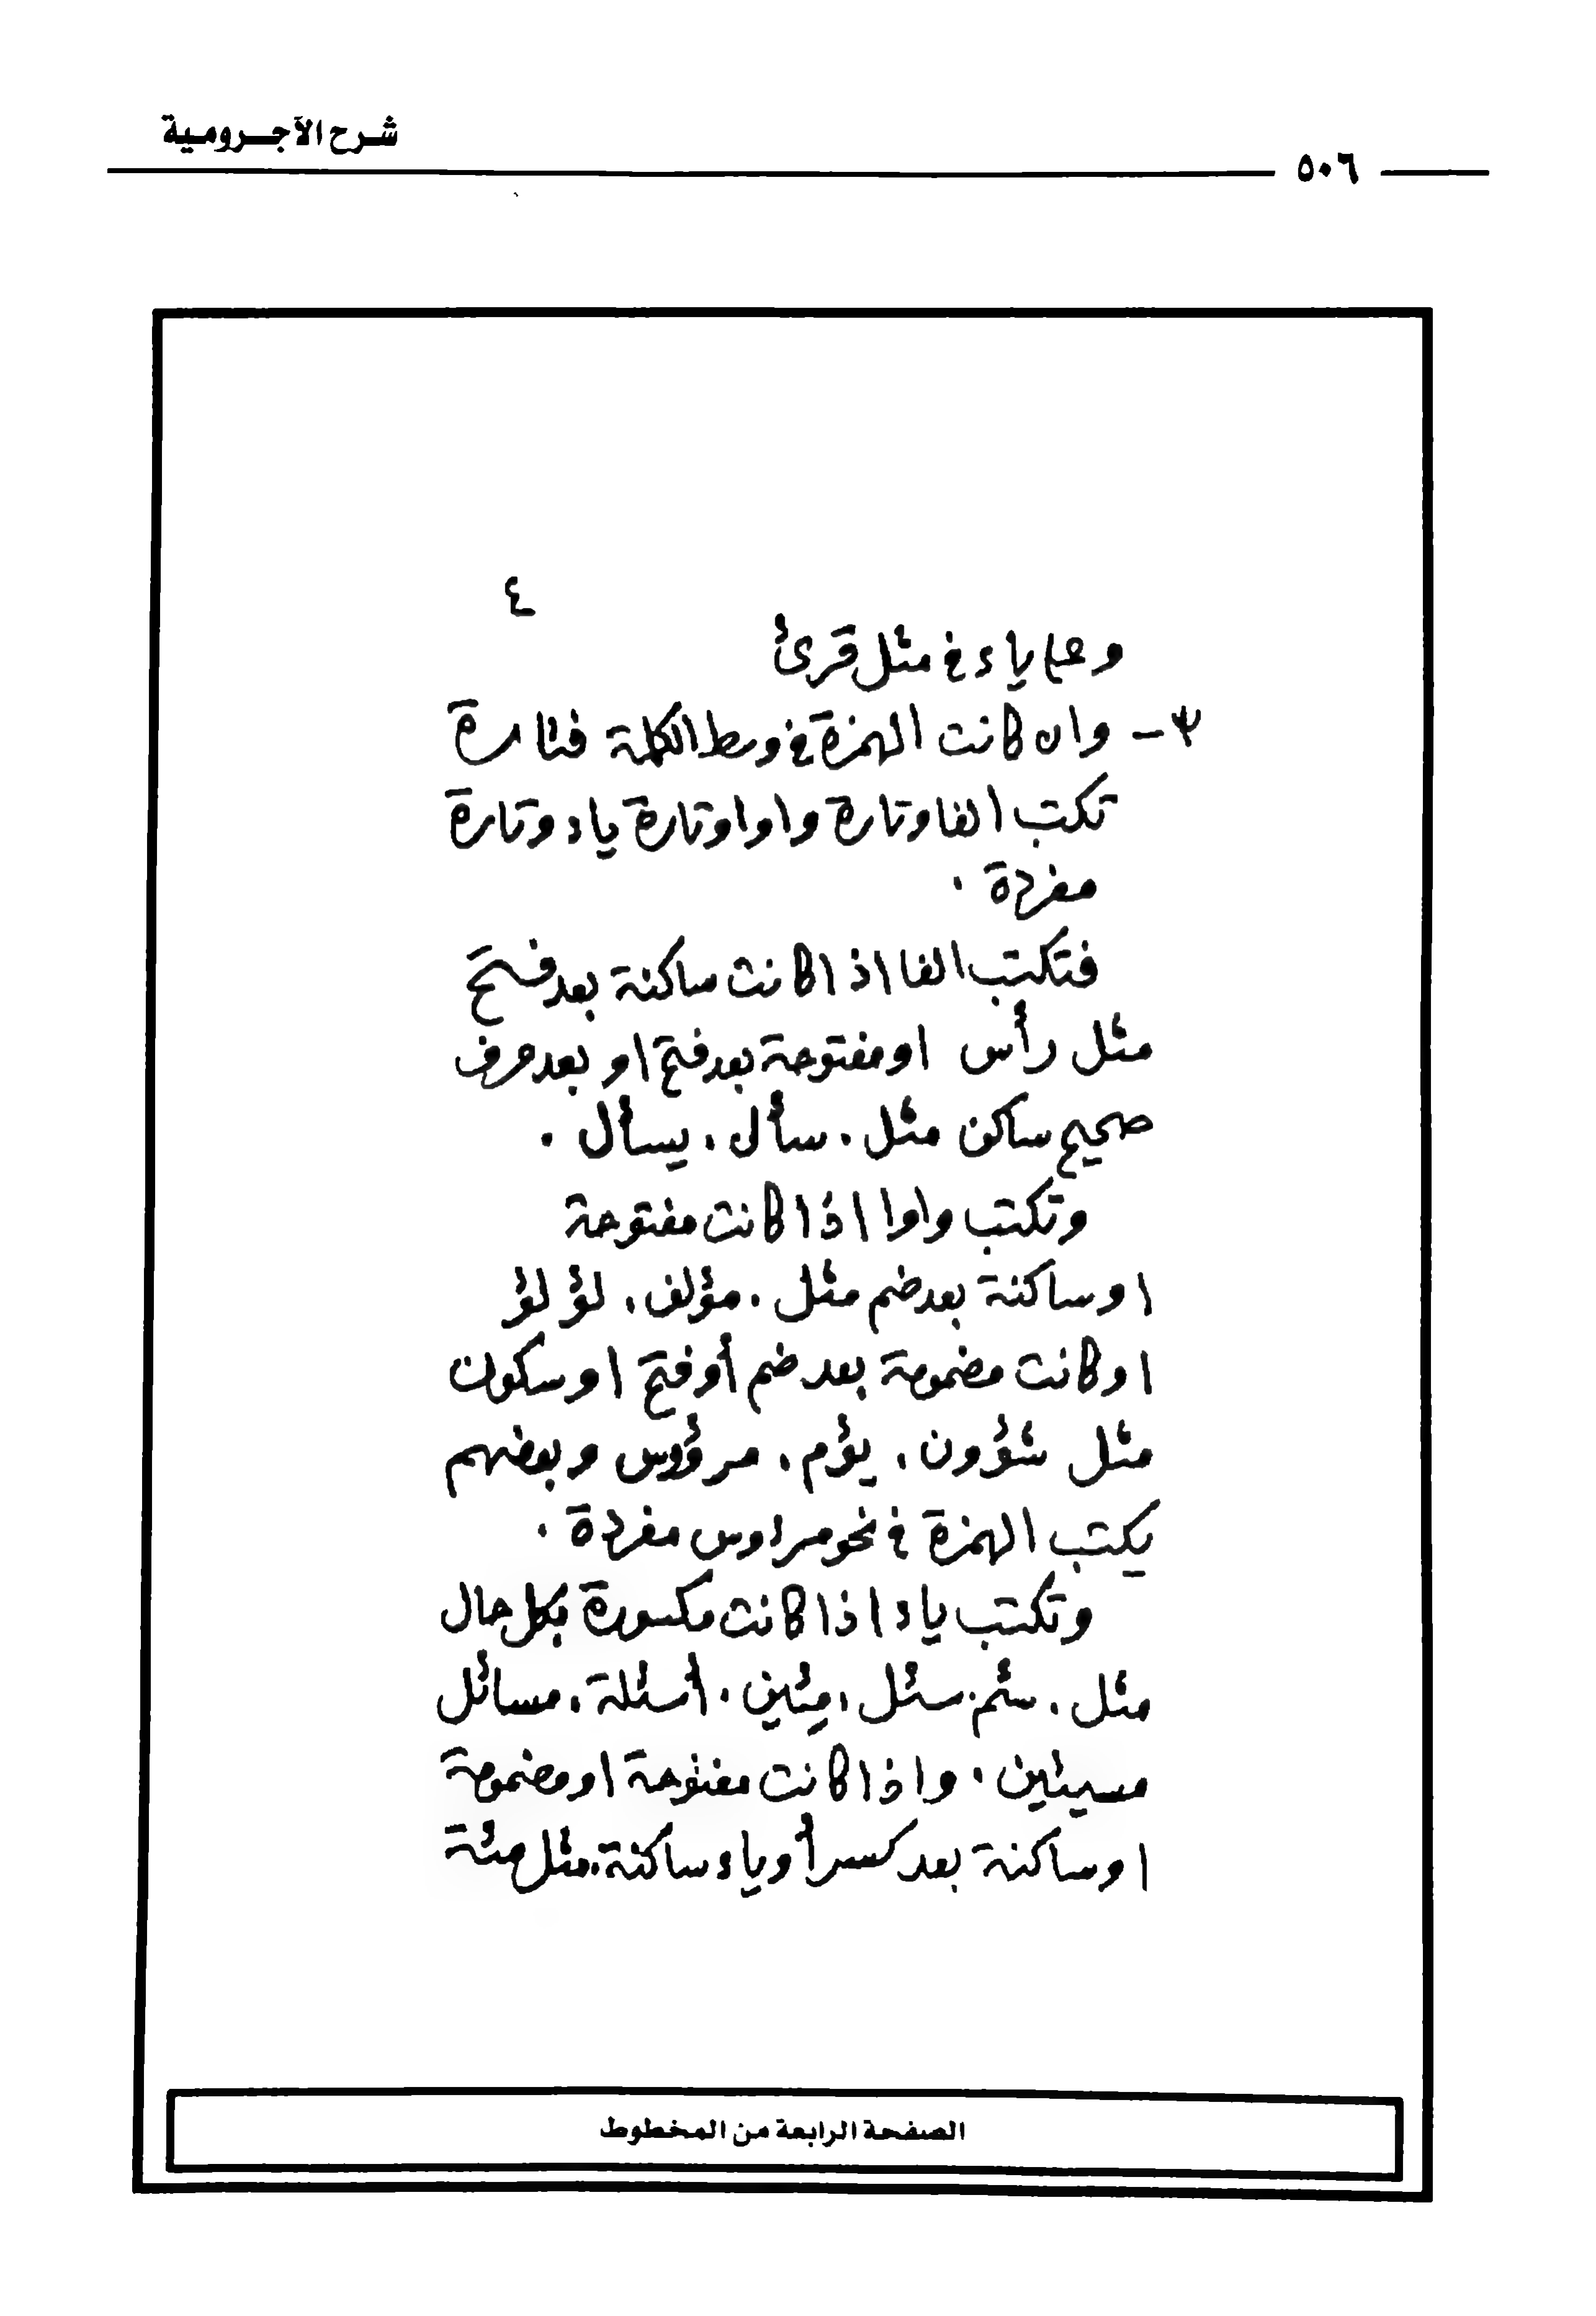 شرح الآجرومية
٥٠٦
٤
وعلى ياء في مثل قرئ
٣- وان كانت الهمزة في وسط الكلمة فتارة
تكتب الفا وتارة واوا وتارة ياء وتارة
مفردة .
فتكتب الفا اذا كانت ساكنة بعد فتح
مثل رأس او مفتوحة بعد فتح او بعد حرف
صحيح ساكن مثل ، سأل ، يسأل .
وتكتب واوا اذا كانت مفتوحة
او ساكنة بعد ضم مثل ، مؤلف ، لؤلؤ
او كانت مضمومة بعد ضم أو فتح او سكون
مثل شؤون ، يؤم ، مرؤوس وبعضهم
يكتب الهمزة في نحو مرءوس مفردة .
وتكتب ياء اذا كانت مكسورة بكل حال
مثل ، سئم ، سئل ، مئين ، أسئلة ، مسائل
مسيئين ، واذا كانت مفتوحة او مضمومة
او ساكنة بعد كسر أو ياء ساكنة ، مثل مئة
الصفحة الرابعة من المخطوط